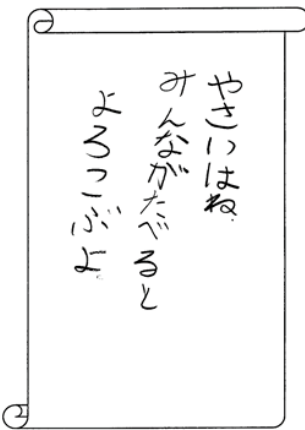 やさいはね
みんながたべると
よろこぶよ